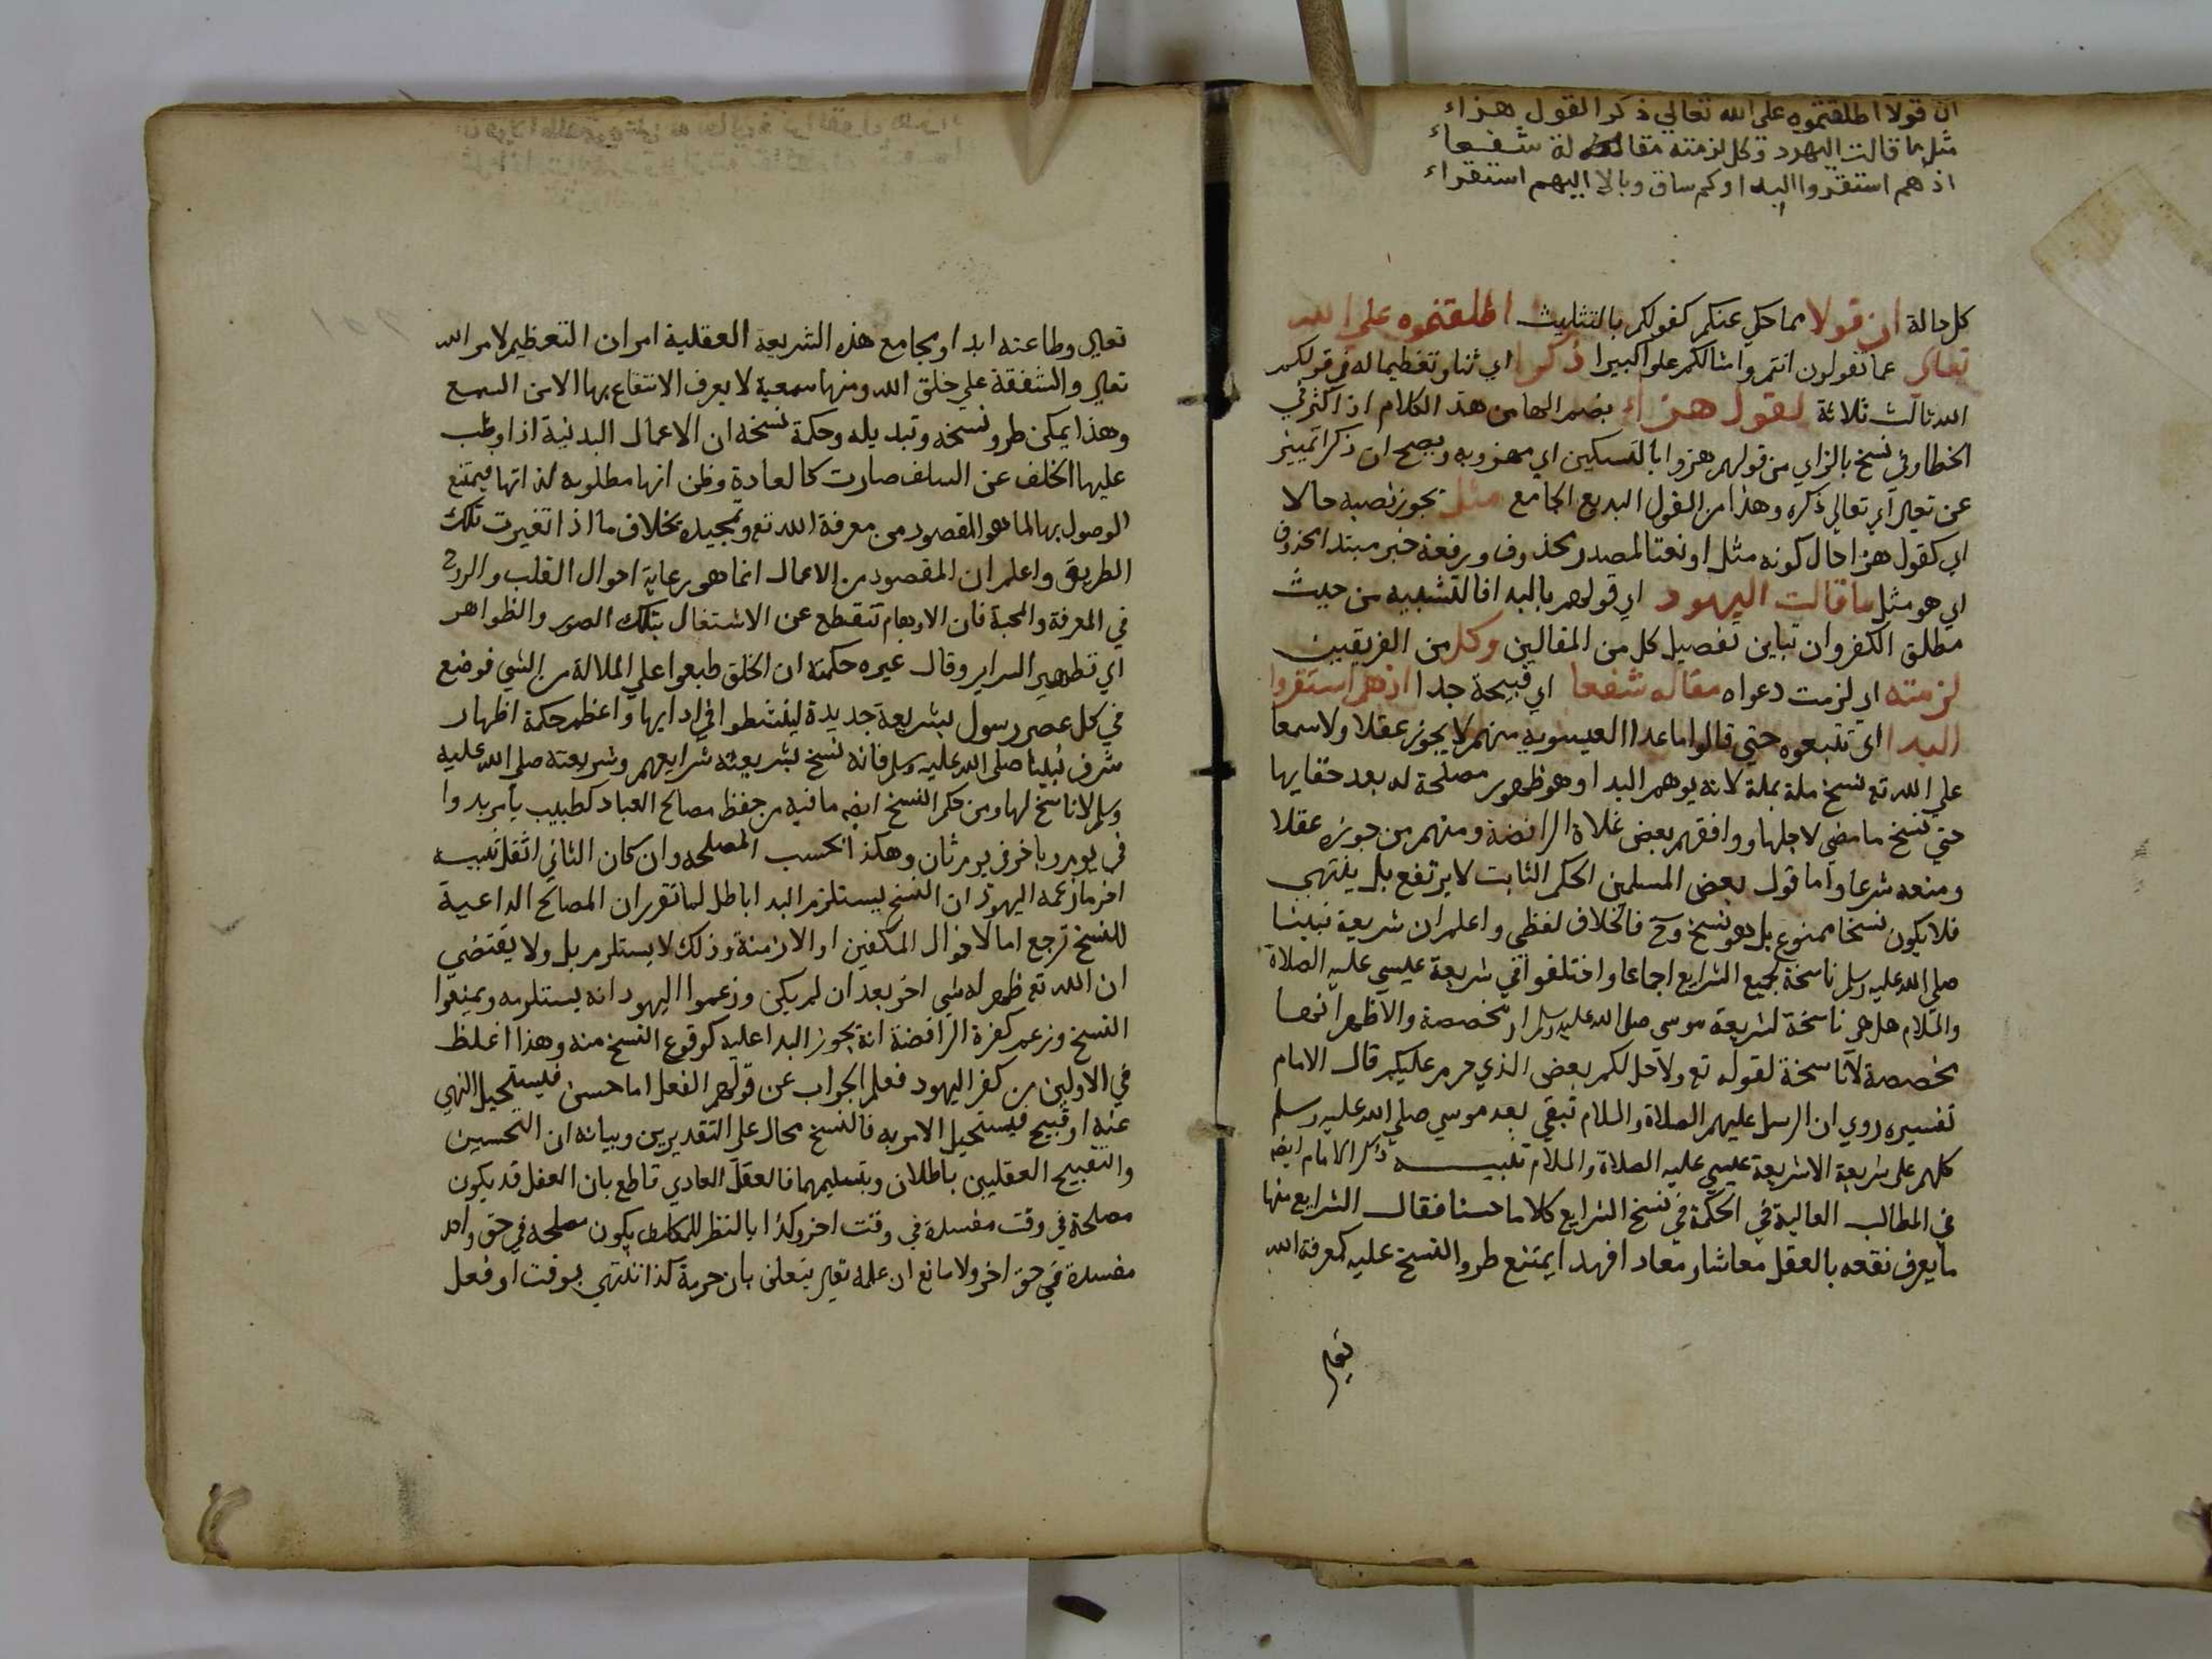 ان قولا اطلقتموه على الله تعالي ذكرا لقول هزاء
مثل ما قالت اليهود وكل لزمته مقالة شفعاء
اذ هم استقروا البدا وكم ساق وبالا اليهم استقراء
كل حالة ان قولا مما حكي عنكم كقولكم بالتثليث اطلقتموه علي الله
تعالى عما تقولون انتم وامثالكم علوا كبيرا ذكرا اي ثنا وتعظيما له في قولكم
الله ثالث ثلاثة لقول هزاء بضم الها من هذا الكلام اذا اكثر في
الخطا وفي نسخ بالزاي من قولهم هزوا بالتسكين اي مهزو به ويصح ان ذكرا تمييز
عن تعالي اي تعالي ذكره وهذا من القول البديع الجامع مثل يجوز نصبه حالا
اي كقول هزا حال كونه مثل او نعتا لمصدر محذوف ورفعه خبر مبتدا محذوف
اي هو مثل ما قالت اليهود اي قولهم بالبدا فالتشبيه من حيث
مطلق الكفر وان تباين تفصيل كل من المقالين وكل من الفريقين
لزمته اي لزمت دعواه مقاله شفعا اي قبيحة جدا اذ هم استقروا
البدا اي تتبعوه حتي قالوا ما عدا العيسويه منهم لا يجوز عقلا ولا سمعا
علي الله تع نسخ ملة بملة لانه يوهم البدا وهو ظهور مصلحة له بعد خفايها
حتي نسخ ما مضي لاجلها ووافقهم بعض غلاة الرافضة ومنهم من جوزه عقلا
ومنعه شرعا واما قول بعض المسلمين الحكم الثابت لا يرتفع بل ينتهي
فلا يكون نسخا ممنوع بل هو نسخ وح فالخلاف لفظي واعلم ان شريعة نبينا
صلي الله عليه وسلم ناسخة لجميع الشرايع اجماعا واختلفوا في شريعة عيسي عليه الصلاة
والسلام هل هي ناسخة لشريعة موسي صلي الله عليه وسلم او مخصصة والاظهر انها
مخصصة لا ناسخة لقوله تع ولاحل لكم بعض الذي حرم عليكم قال الامام
تفسيره روي ان الرسل عليهم الصلاة والسلام تبقي بعد موسي صلي الله عليه وسلم
كلهم علي شريعة الا شريعة عيسي عليه الصلاة والسلام تنبيه ذكر الامام ايضه
في المطالب العالية في الحكمة في نسخ الشرايع كلاما حسنا فقال الشرايع منها
ما يعرف نفعه بالعقل معاشا ومعادا فهذا يمتنع طرو النسخ عليه كمعرفة الله
تعالي
تعالي وطاعته ابدا ومجامع هذه الشريعة العقلية امران التعظيم لامر الله
تعالي والشفقة علي خلق الله ومنها سمعية لا يعرف الانتفاع بها الا من السمع
وهذا يمكن طرو نسخه وتبديله وحكمة نسخه ان الاعمال البدنية اذا وظب
عليها الخلف عن السلف صارت كالعادة وظن انها مطلوبه لذاتها فيمتنع
الوصول بها لما هو المقصود من معرفة الله تع وتمجيده بخلاف ما اذا تغيرت تلك
الطريق واعلم ان المقصود من الاعمال انما هو رعاية احوال القلب والروح
في المعرفة والمحبة فان الاوهام تنقطع عن الاشتغال بتلك الصور والظواهر
اي تطهير السراير وقال غيره حكمته ان الخلق طبعوا علي الملالة من الشي فوضع
في كل عصر رسول بشريعة جديدة لينشطوا في ادايها واعظم حكمة اظهار
شرف نبينا صلي الله عليه وسلم فانه نسخ بشريعته شرايعهم وشريعته صلي الله عليه
وسلم لا ناسخ لها ومن حكم النسخ ايضه ما فيه من حفظ مصالح العباد كطبيب يامر بدوا
في يوم وباخر في يوم ثان وهكذا بحسب المصلحه وان كان الثاني اثقل تنبيه
اخر ما زعمه اليهود ان النسخ يستلزم البدا باطل لما تقرر ان المصالح الداعية
للنسخ ترجع اما لاحوال المكلفين او الازمنة وذلك لا يستلزم بل ولا يقتضي
ان الله تع ظهر له شي اخر بعد ان لم يكن وزعموا اليهود انه يستلزمه ويمنعوا
النسخ وزعم كفرة الرافضة انه يجوز البدا عليه كوقوع النسخ منه وهذا اغلظ
في الاولين من كفر اليهود فعلم الجواب عن قولهم الفعل اما حسن فيستحيل النهي
عنه او قبيح فيستحيل الامر به فالنسخ محال علي التقديرين وبيانه ان التحسين
والتقبيح العقليين باطلان وبتسليمهما فالعقل العادي قاطع بان الفعل قد يكون
مصلحة في وقت مفسدة في وقت اخر وكذا بالنظر للمكلف يكون مصلحه في حق واحد
مفسدة في حق اخر ولا مانع ان علمه تعالي يتعلق بان حرمة كذا تنتهي بوقت او فعل